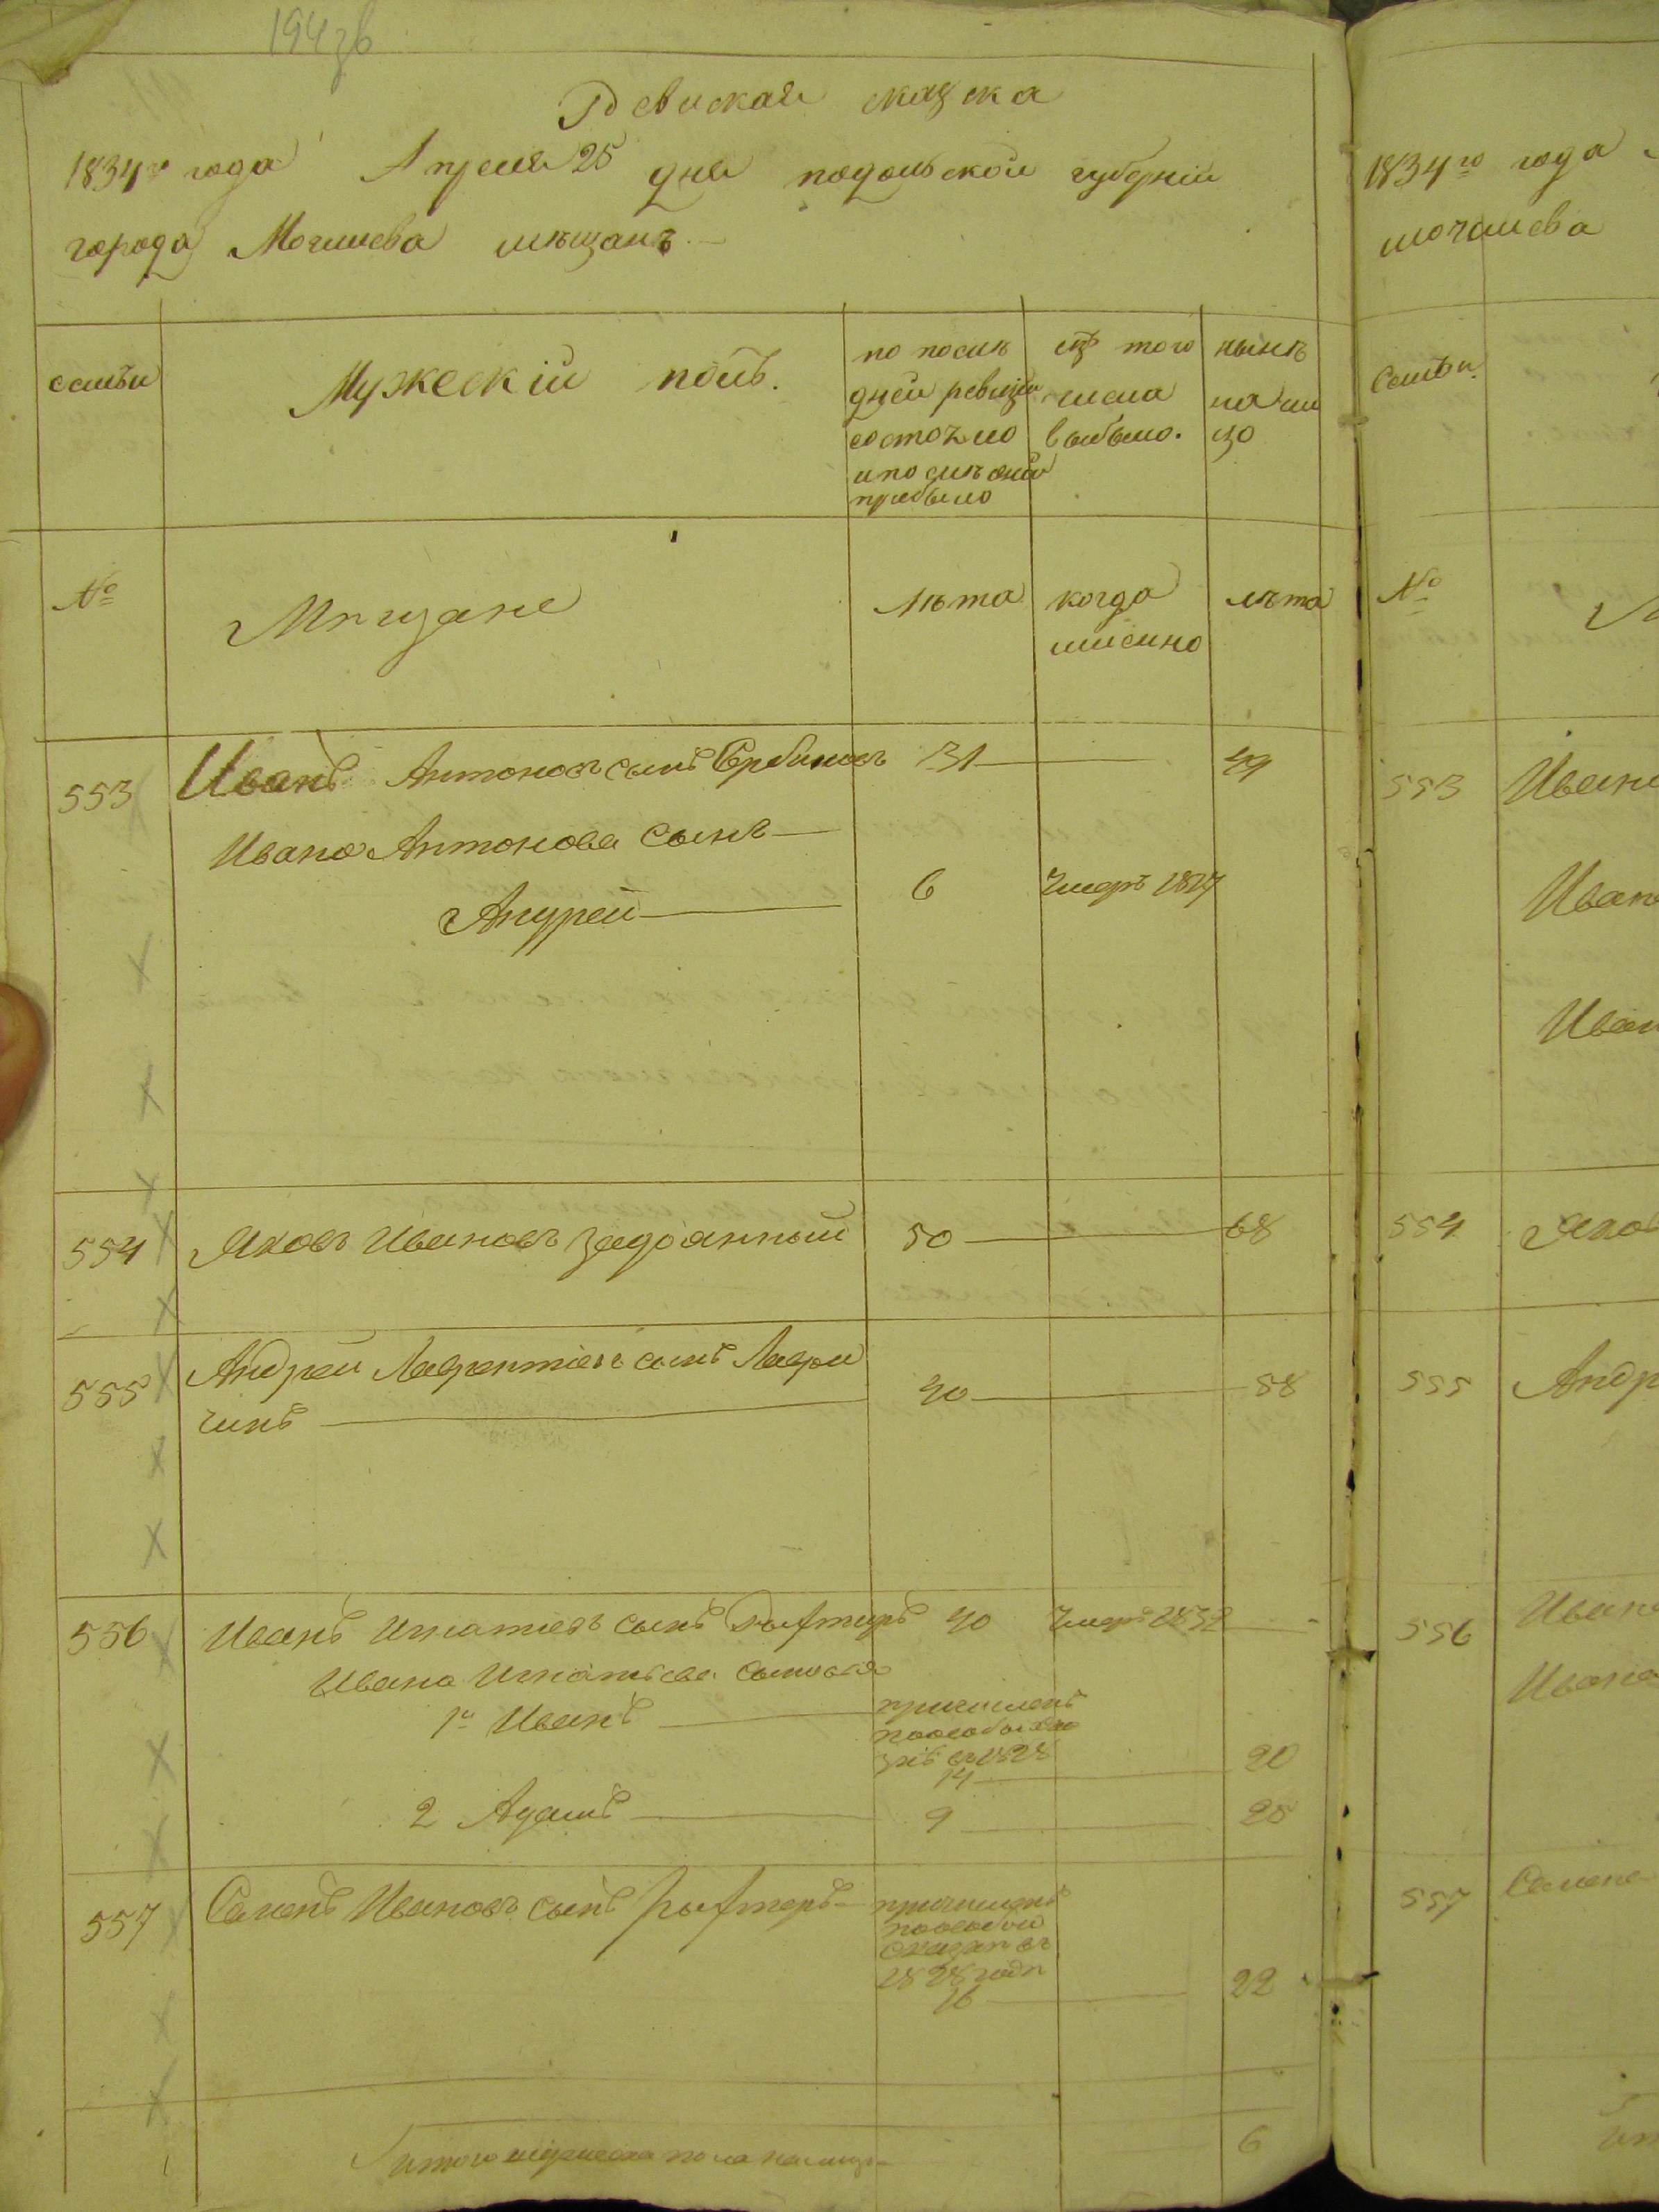 194зв
Ревиская сказка
1834го года Апреля 25 дня подольской губерніи
города Могилева мѣщанъ
семьи
Мужескій полъ.
по после
дней ревизіи
состояло
и послѣ оной
прибыло
изъ того
числа
выбыло.
нынѣ
на ли
цо
№
Мѣщане
Лѣта
когда
имянно
лѣта
553 Иванъ Антоновъ сынъ 31 49
Ивана Антонова сынъ
Андрей 6 Умеръ 1827
554 Яковъ Ивановъ Задоянный 50 68
555 Андрей Лаврентіевъ сынъ Лаври
чинъ 40 58
556 Иванъ Игнатіевъ сынъ 40 Умеръ
Ивана Игнатьева сыновья
1й Иванъ
причисленъ
зкѣ въ 1828
14 20
2 Адамъ 9 25
557 Семенъ Ивановъ сынъ
причисленъ
по особой
сказкѣ въ
1828 годѣ
16 22
Итого мужеска пола налицо 6
1834го года
могилева
семьи
№
553
Ивана
554
555
556
Ивана
557